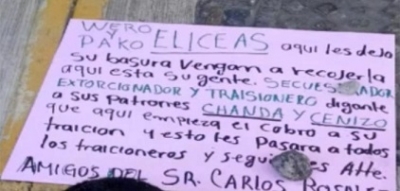 WERO
Y
PAKO ELICEAS aqui les dejo
su basura Vengan a recojerla
aqui esta su gente. SECUESTRADOR
EXTORCIONADOR Y TRAISIONERO digante
a sus Patrones CHANDA y CENIZO
que aqui empieza el cobro a su
traicion y esto les Pasara a todos
los traicioneros y Atte.
AMIGOS DEL SR. CARLOS